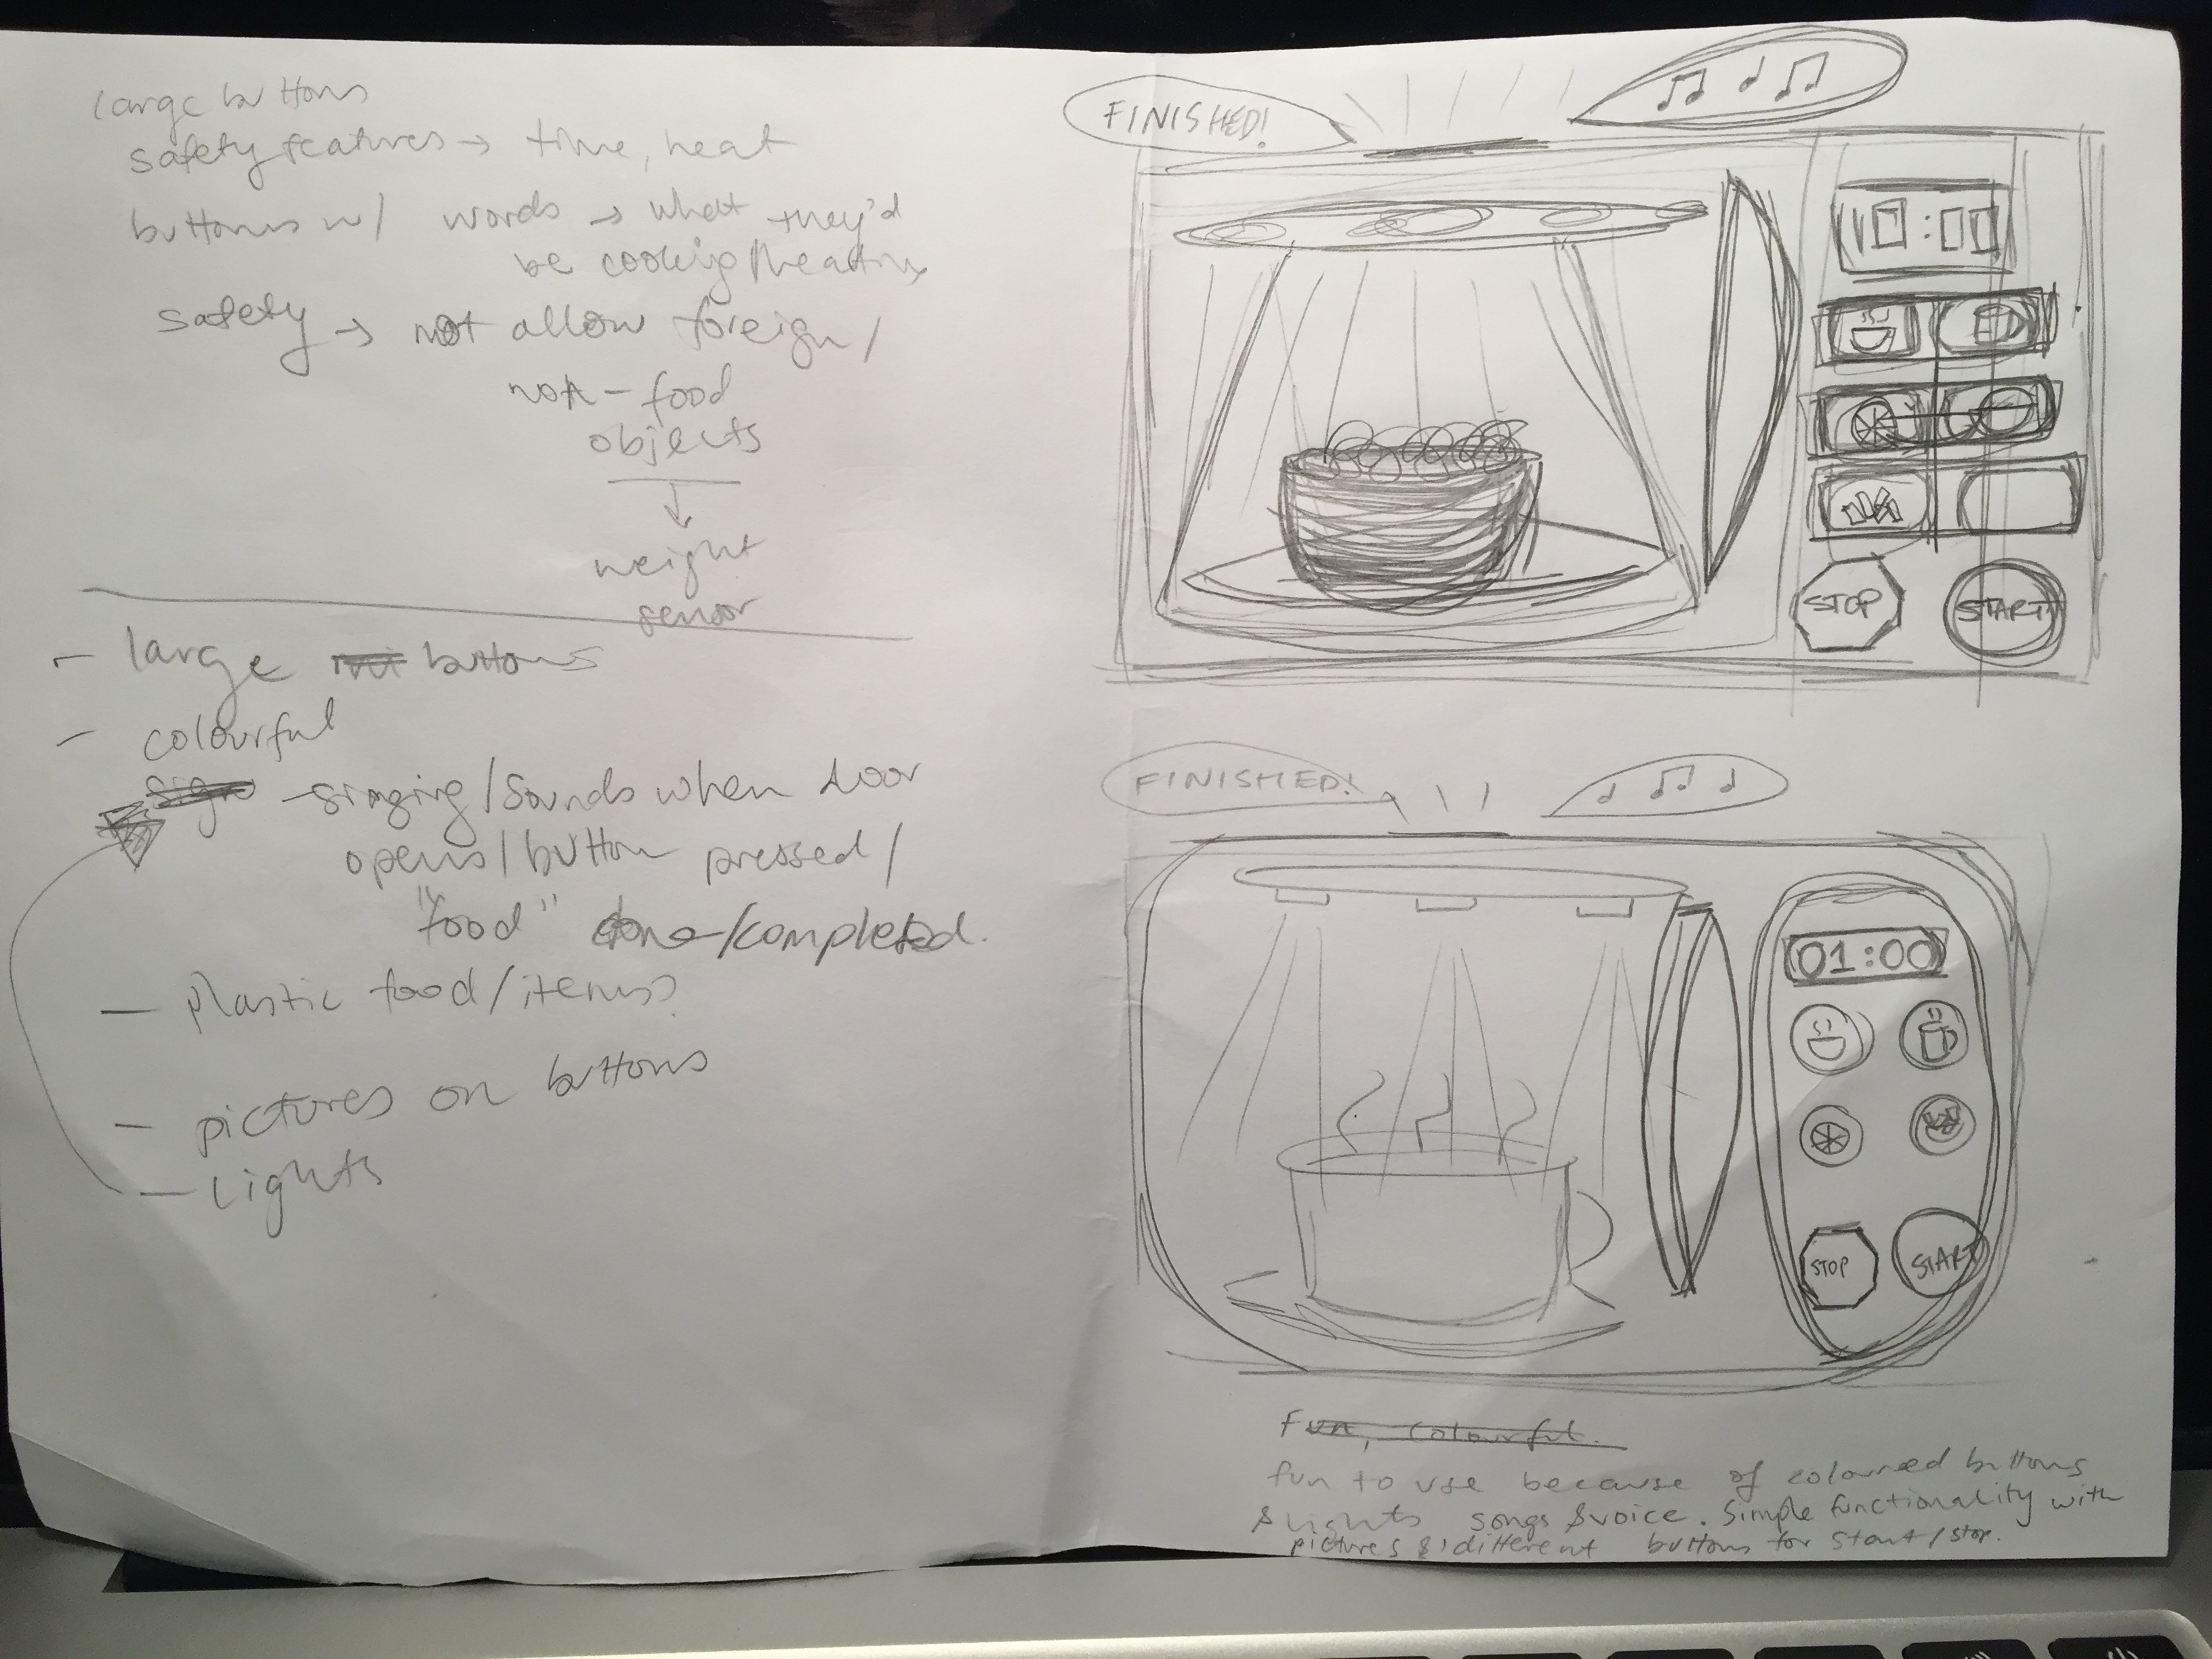 large buttons
safety features → time, heat
buttons w/ words → what they'd
be cooking/heating
safety → not allow foreign/
non-food
objects
↓
weight
sensor
- large buttons
- colourful
- singing/sounds when door
opens/button pressed/
"food" done/completed.
- plastic food/items?
- pictures on buttons
- Lights
FINISHED!
10:00
STOP
START
FINISHED!
01:00
STOP
START
Fun, colourful.
fun to use because of coloured buttons
& lights songs & voice. Simple functionality with
pictures & different buttons for start/stop.